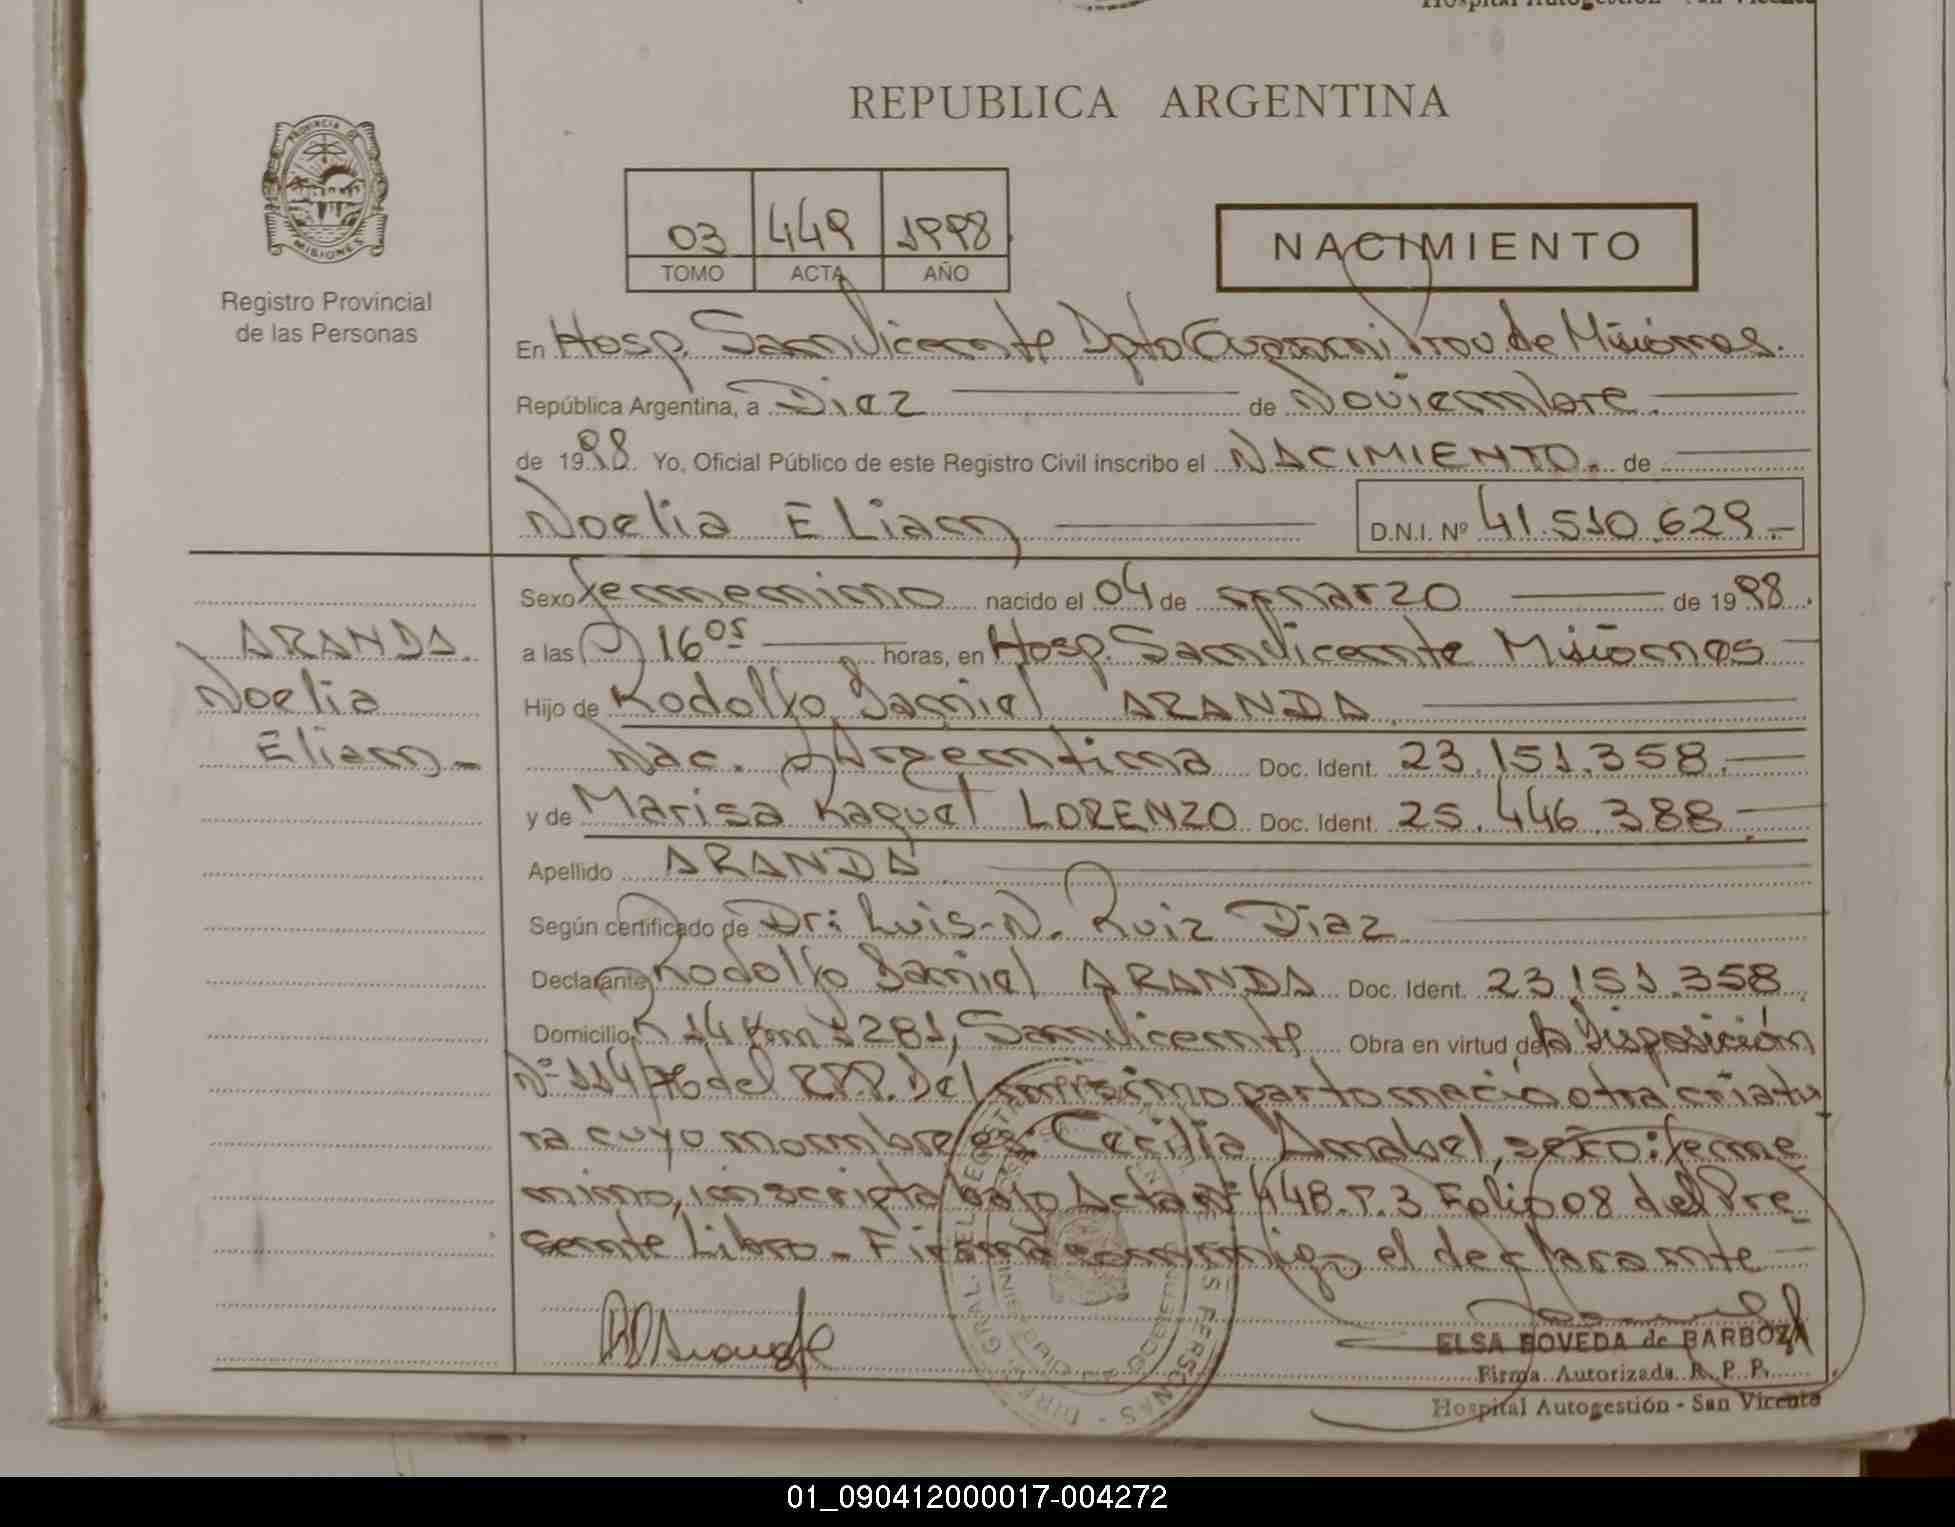 Hospital Autogestión - San Vicente
REPUBLICA ARGENTINA
PROVINCIA DE
MISIONES
Registro Provincial
de las Personas
03 449 1998
TOMO ACTA AÑO
NACIMIENTO
En Hosp. San Vicente Dpto Guarani Prov. de Misiones.
República Argentina, a Diez de Noviembre.
de 1998. Yo, Oficial Público de este Registro Civil inscribo el NACIMIENTO. de
Noelia Eliam D.N.I. Nº 41.510.629.-
Sexo femenino nacido el 04 de marzo de 1998.
ARANDA
Noelia
Eliam-
a las 16 05 horas, en Hosp. San Vicente Misiones
Hijo de Rodolfo Daniel ARANDA
Nac. Argentina Doc. Ident. 23.151.358.
y de Marisa Raquel LORENZO Doc. Ident. 25.446.388
Apellido ARANDA
Según certificado de Dr: Luis-N. Ruiz Diaz
Declarante Rodolfo Daniel ARANDA Doc. Ident. 23.151.358
Domicilio R 14 Km 1281, San Vicente Obra en virtud de la Disposición
Nº 114/76 del RPP. Del mismo parto nació otra criatu
ra cuyo nombre es: Cecilia Anabel, sexo: feme
nino, inscripta bajo Acta Nº 448. T. 3 Folio 08 del Pre
sente Libro - Firma conmigo el declarante
ELSA BOVEDA de BARBOZA
Firma Autorizada R. P. P.
Hospital Autogestión - San Vicente
01_090412000017-004272